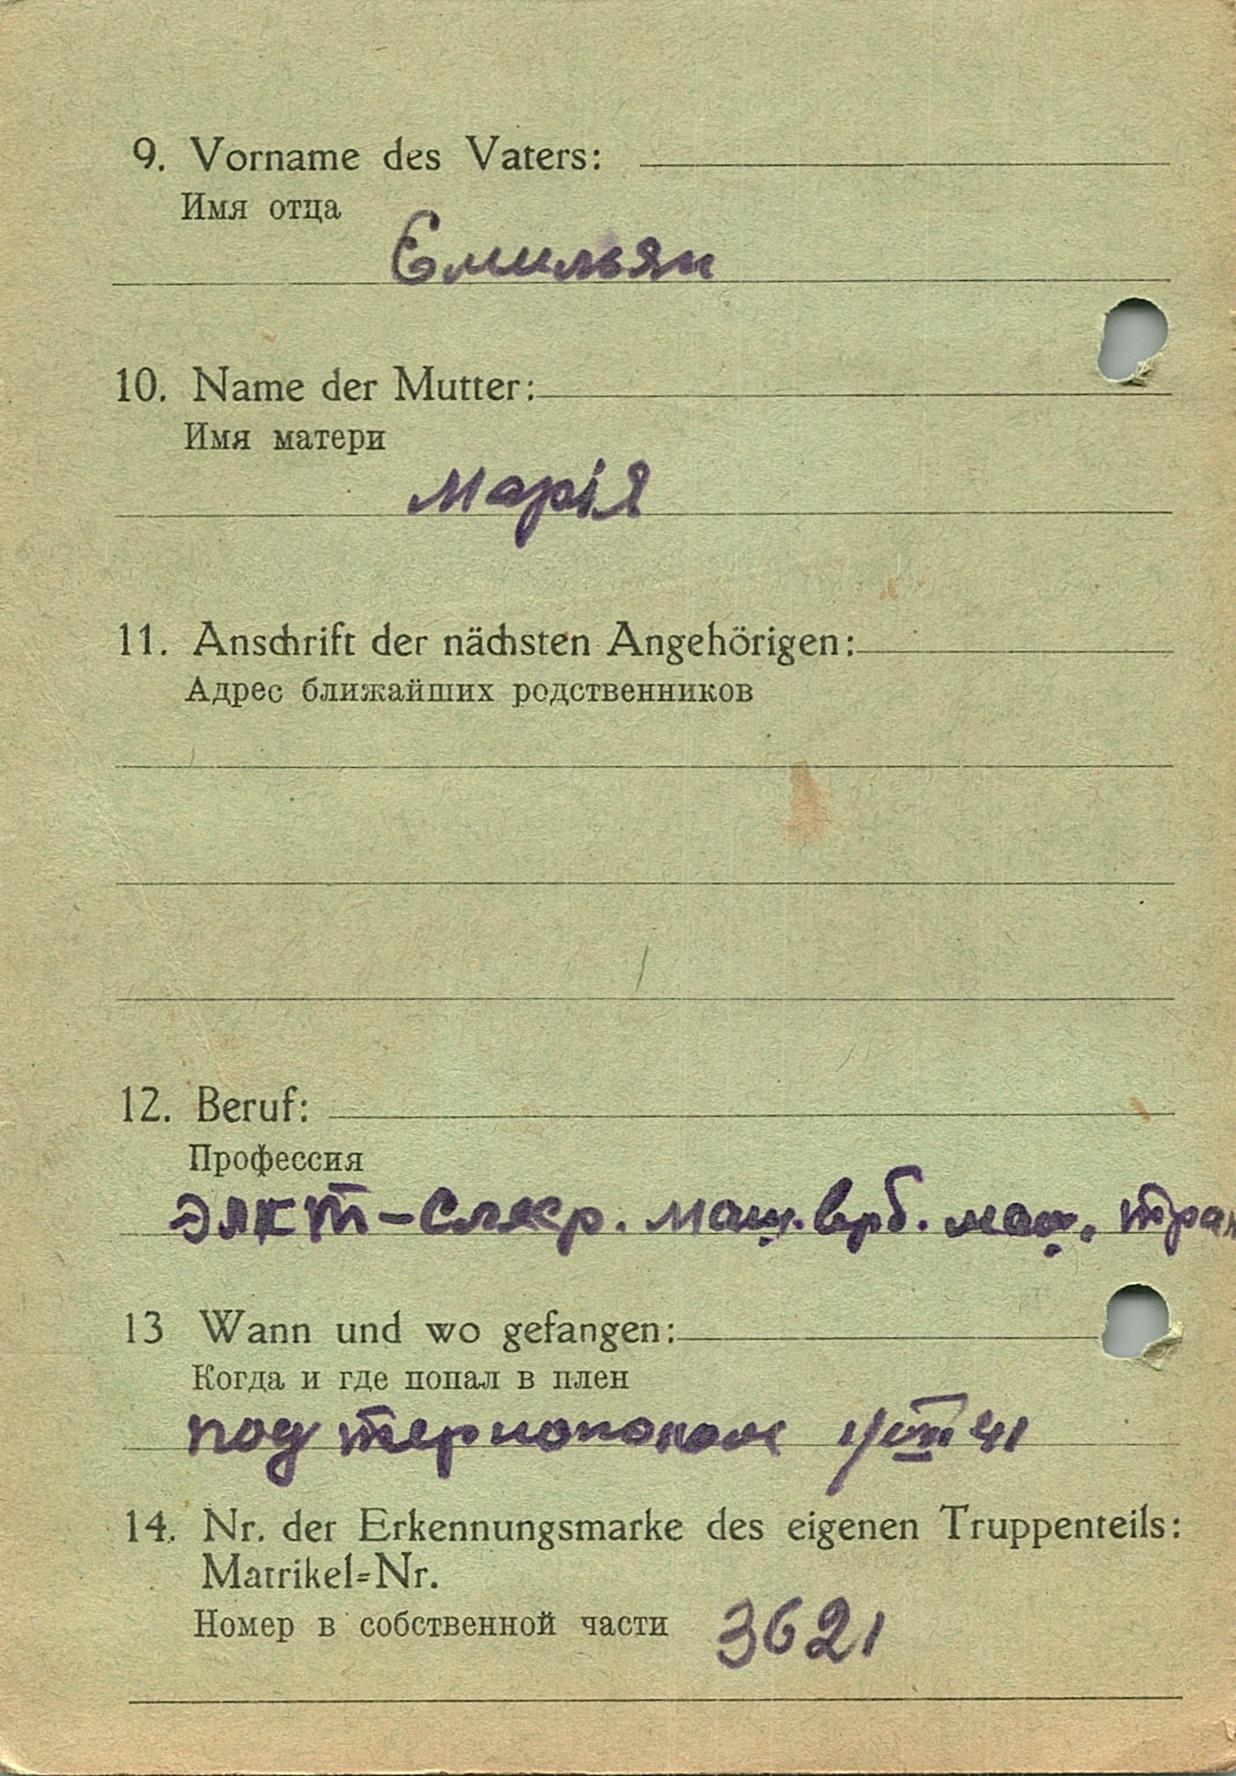 9. Vorname des Vaters:
Имя отца
Емильян
10. Name der Mutter:
Имя матери
Марія
11. Anschrift der nächsten Angehörigen:
Адрес ближайших родственников
12. Beruf:
Профессия
элкт-слеср. маш. врб. маш. тран
13 Wann und wo gefangen:
Когда и где попал в плен
под тернополом 41
14. Nr. der Erkennungsmarke des eigenen Truppenteils:
Matrikel-Nr.
Номер в собственной части 3621